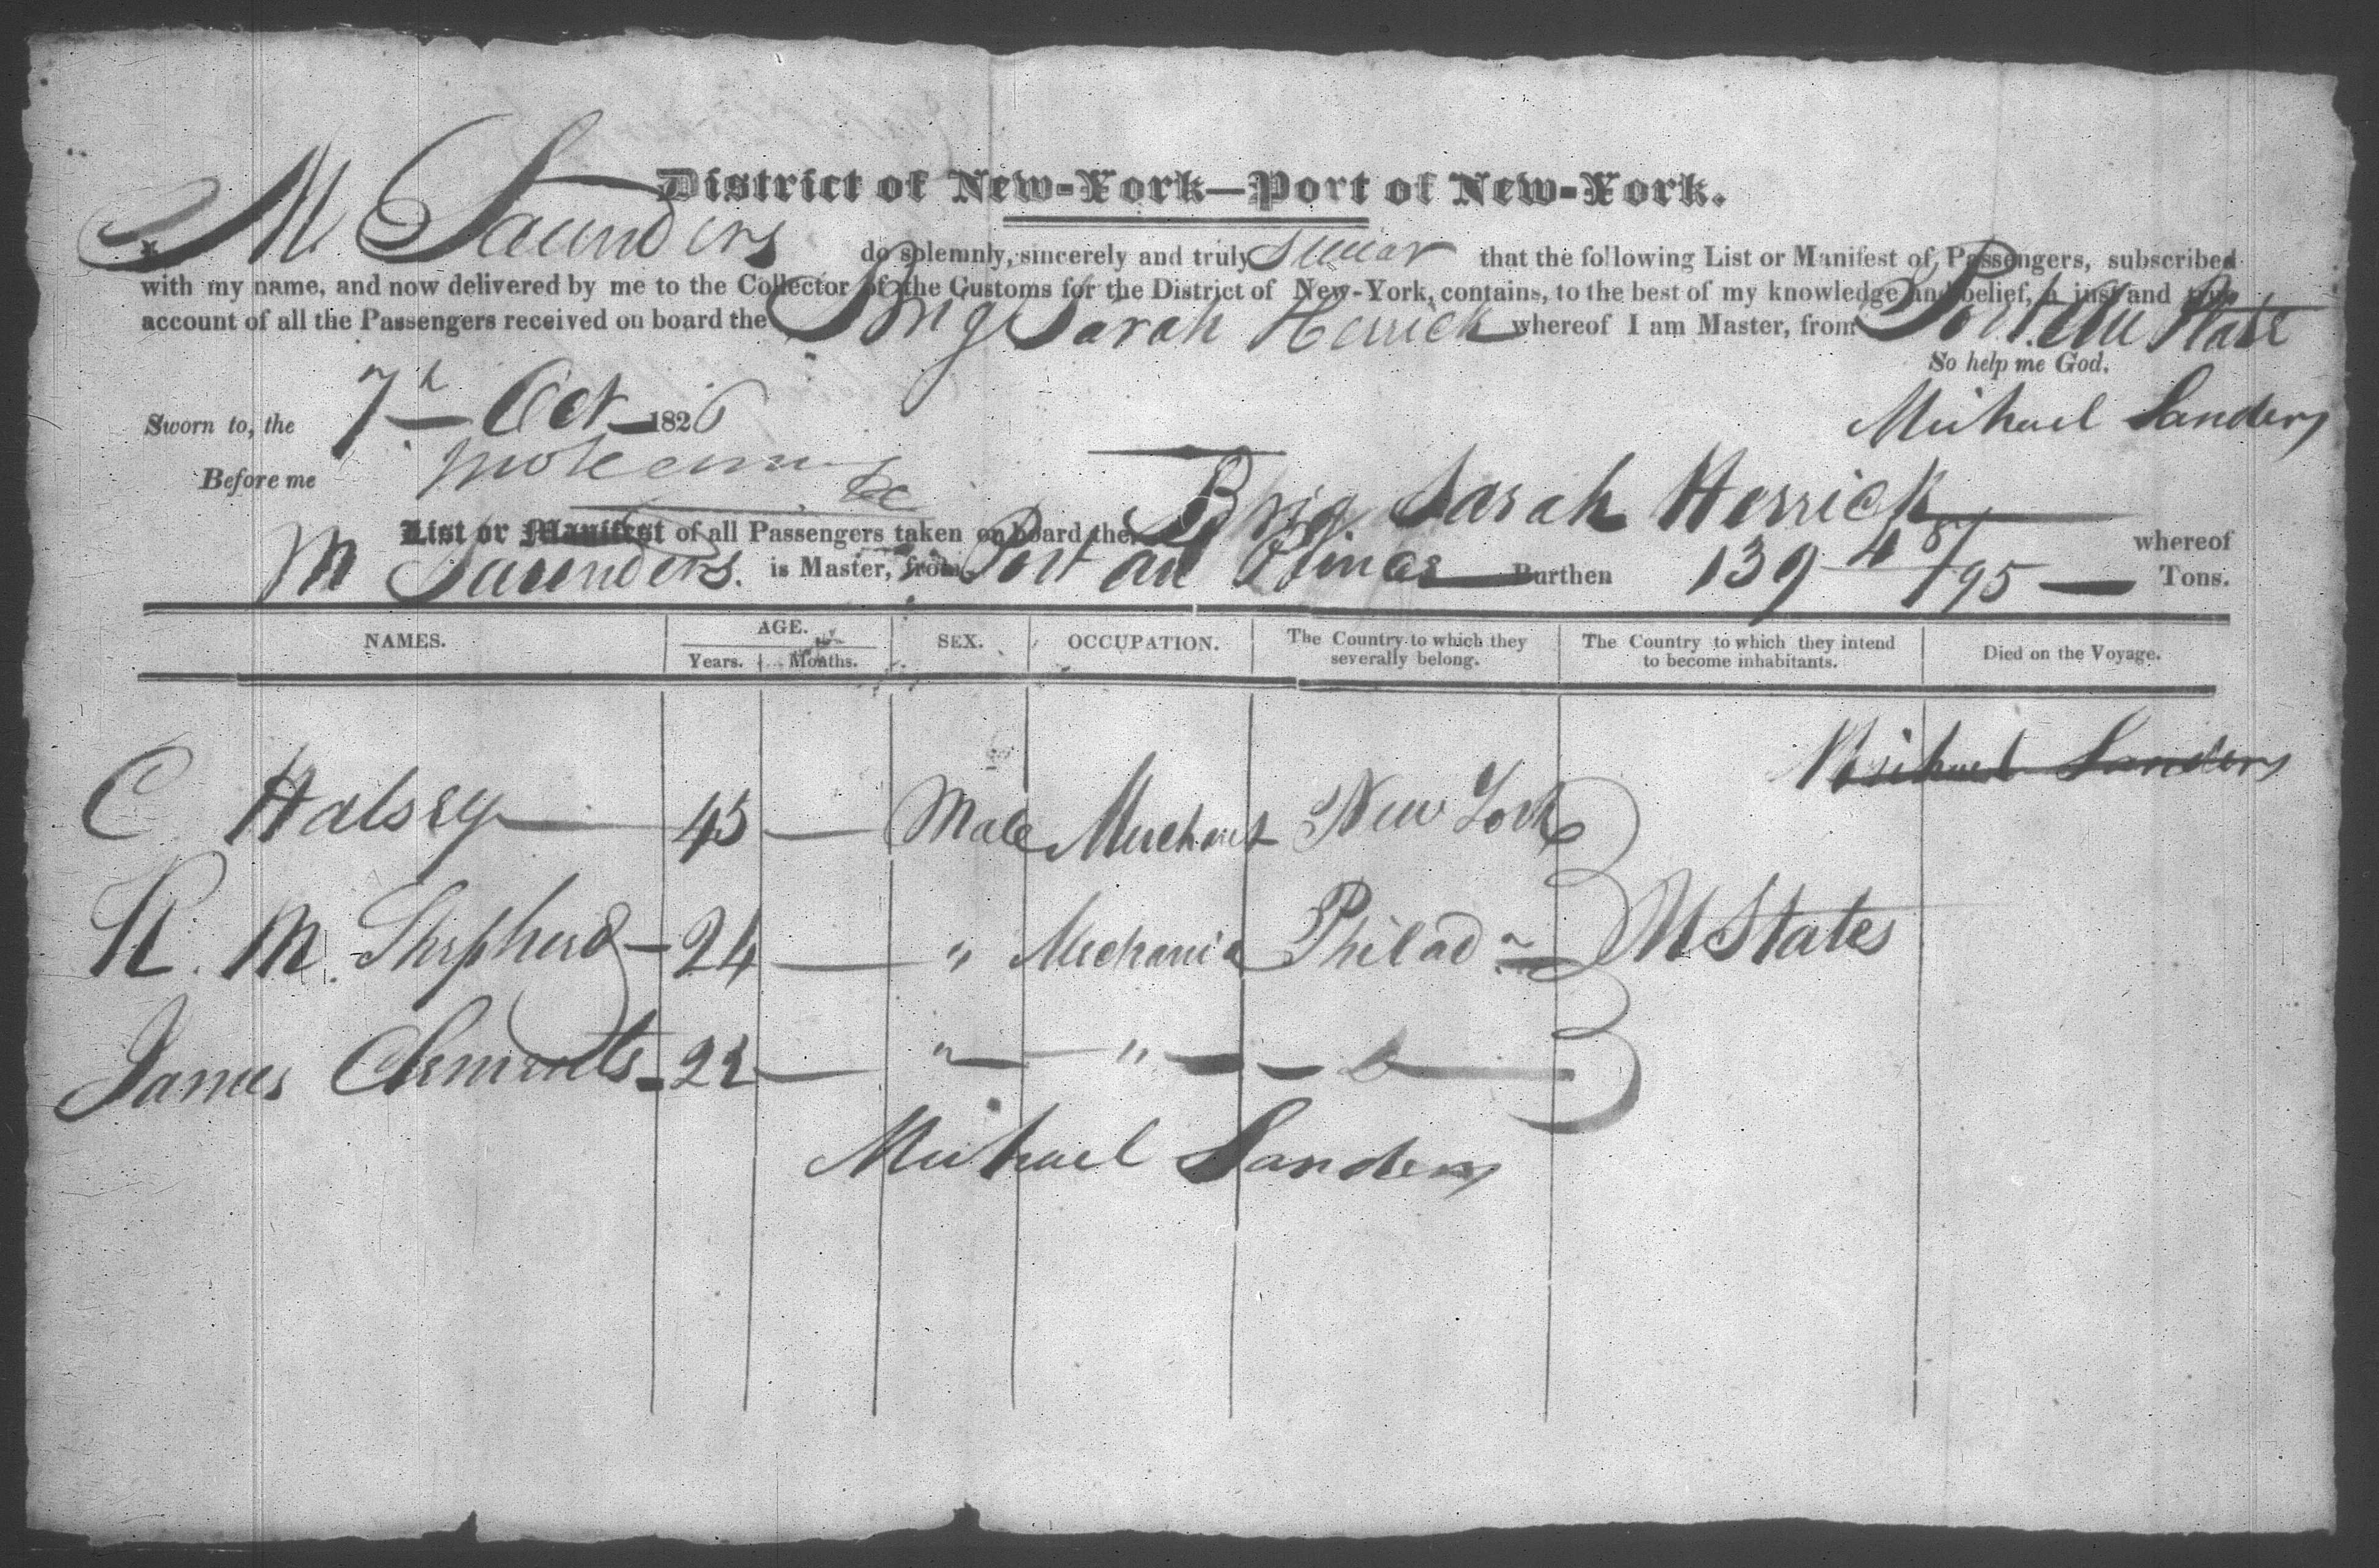 District of New-York—Port of New-York.
I, M Saunders do solemnly, sincerely and truly Swear that the following List or Manifest of Passengers, subscribed
with my name, and now delivered by me to the Collector of the Customs for the District of New-York, contains, to the best of my knowledge and belief, a just and true
account of all the Passengers received on board the Brig Sarah Herrick whereof I am Master, from Port au Plate
So help me God.
Sworn to, the 7h Oct 1826
Michael Sanders
Before me
List or Manifest of all Passengers taken on board the Brig Sarah Herrick whereof
M Saunders. is Master, from Port au Burthen 139 4 Tons.
NAMES. AGE. SEX. OCCUPATION. The Country to which they severally belong. The Country to which they intend to become inhabitants. Died on the Voyage.
Years. Months.
Michael Sanders
C Halsey 45 — Male Merchant New York
R. M. Shepherd — 24 — " Mechanic Philad U States
James Clements — 22 — " "
Michael Sanders